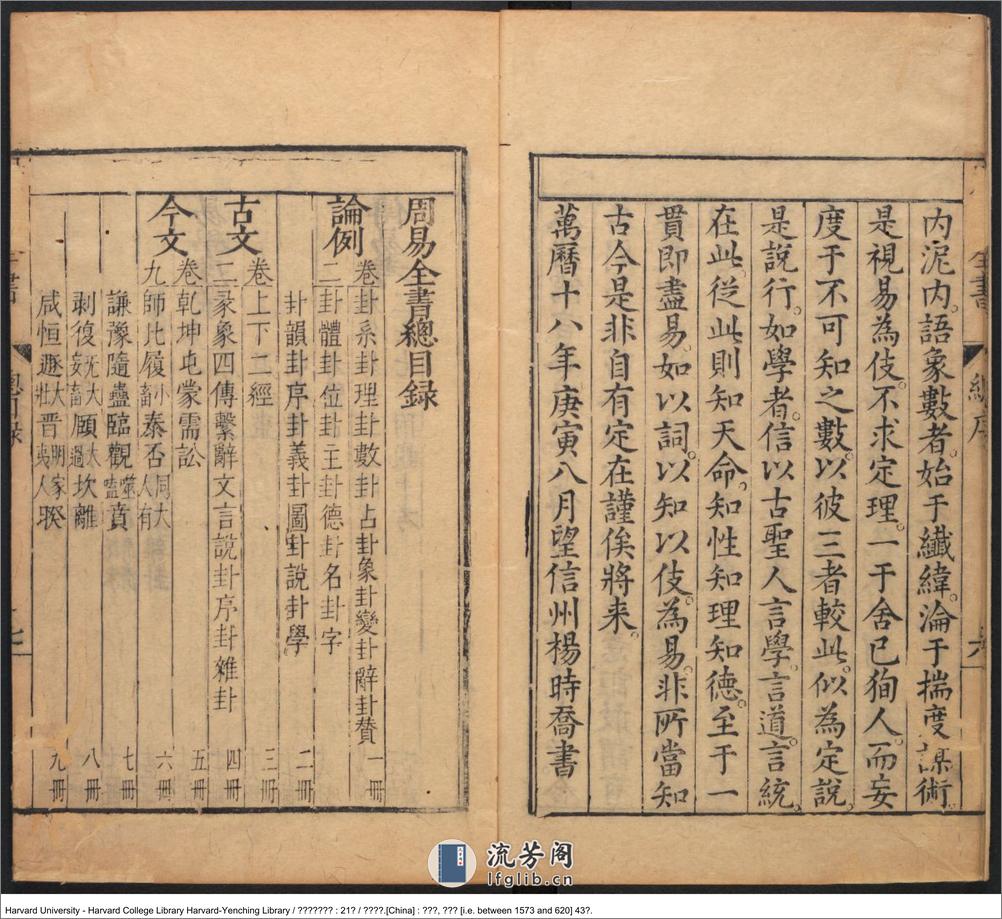 內泥內。語象數者。始于纖緯。淪于揣度謀術。
是視易為伎。不求定理。一于舍已狥人。而妄
度于不可知之數。以彼三者較此。似為定說。
是說行。如學者。信以古聖人言學。言道。言統。
在此。從此則知天命。知性知理知德。至于一
貫即盡易。如以詞。以知以伎。為易。非所當知
古今是非自有定在謹俟將来。
萬曆十八年庚寅八月望信州楊時喬書
全書
總序
六
周易全書總目録
論例
卷卦系卦理卦數卦占卦象卦變卦辭卦贊 一冊
二卦體卦位卦王卦德卦名卦字
卦韻卦序卦義卦圖卦說卦學 二冊
古文
卷上下二經 三冊
二彖象四傳繫辭文言說卦序卦雜卦 四冊
今文
卷乾坤屯蒙需訟 五冊
九師比履小畜泰否同人大有 六冊
謙豫隨蠱臨觀噬嗑賁 七冊
剥復无妄大畜頤大過坎離 八冊
咸恒遯大壯晉明夷家人睽 九冊
書
總目録
七
流芳阁
lfglib.cn
Harvard University - Harvard College Library Harvard-Yenching Library / ??????? : 21? / ????.[China] : ???, ??? [i.e. between 1573 and 620] 43?.